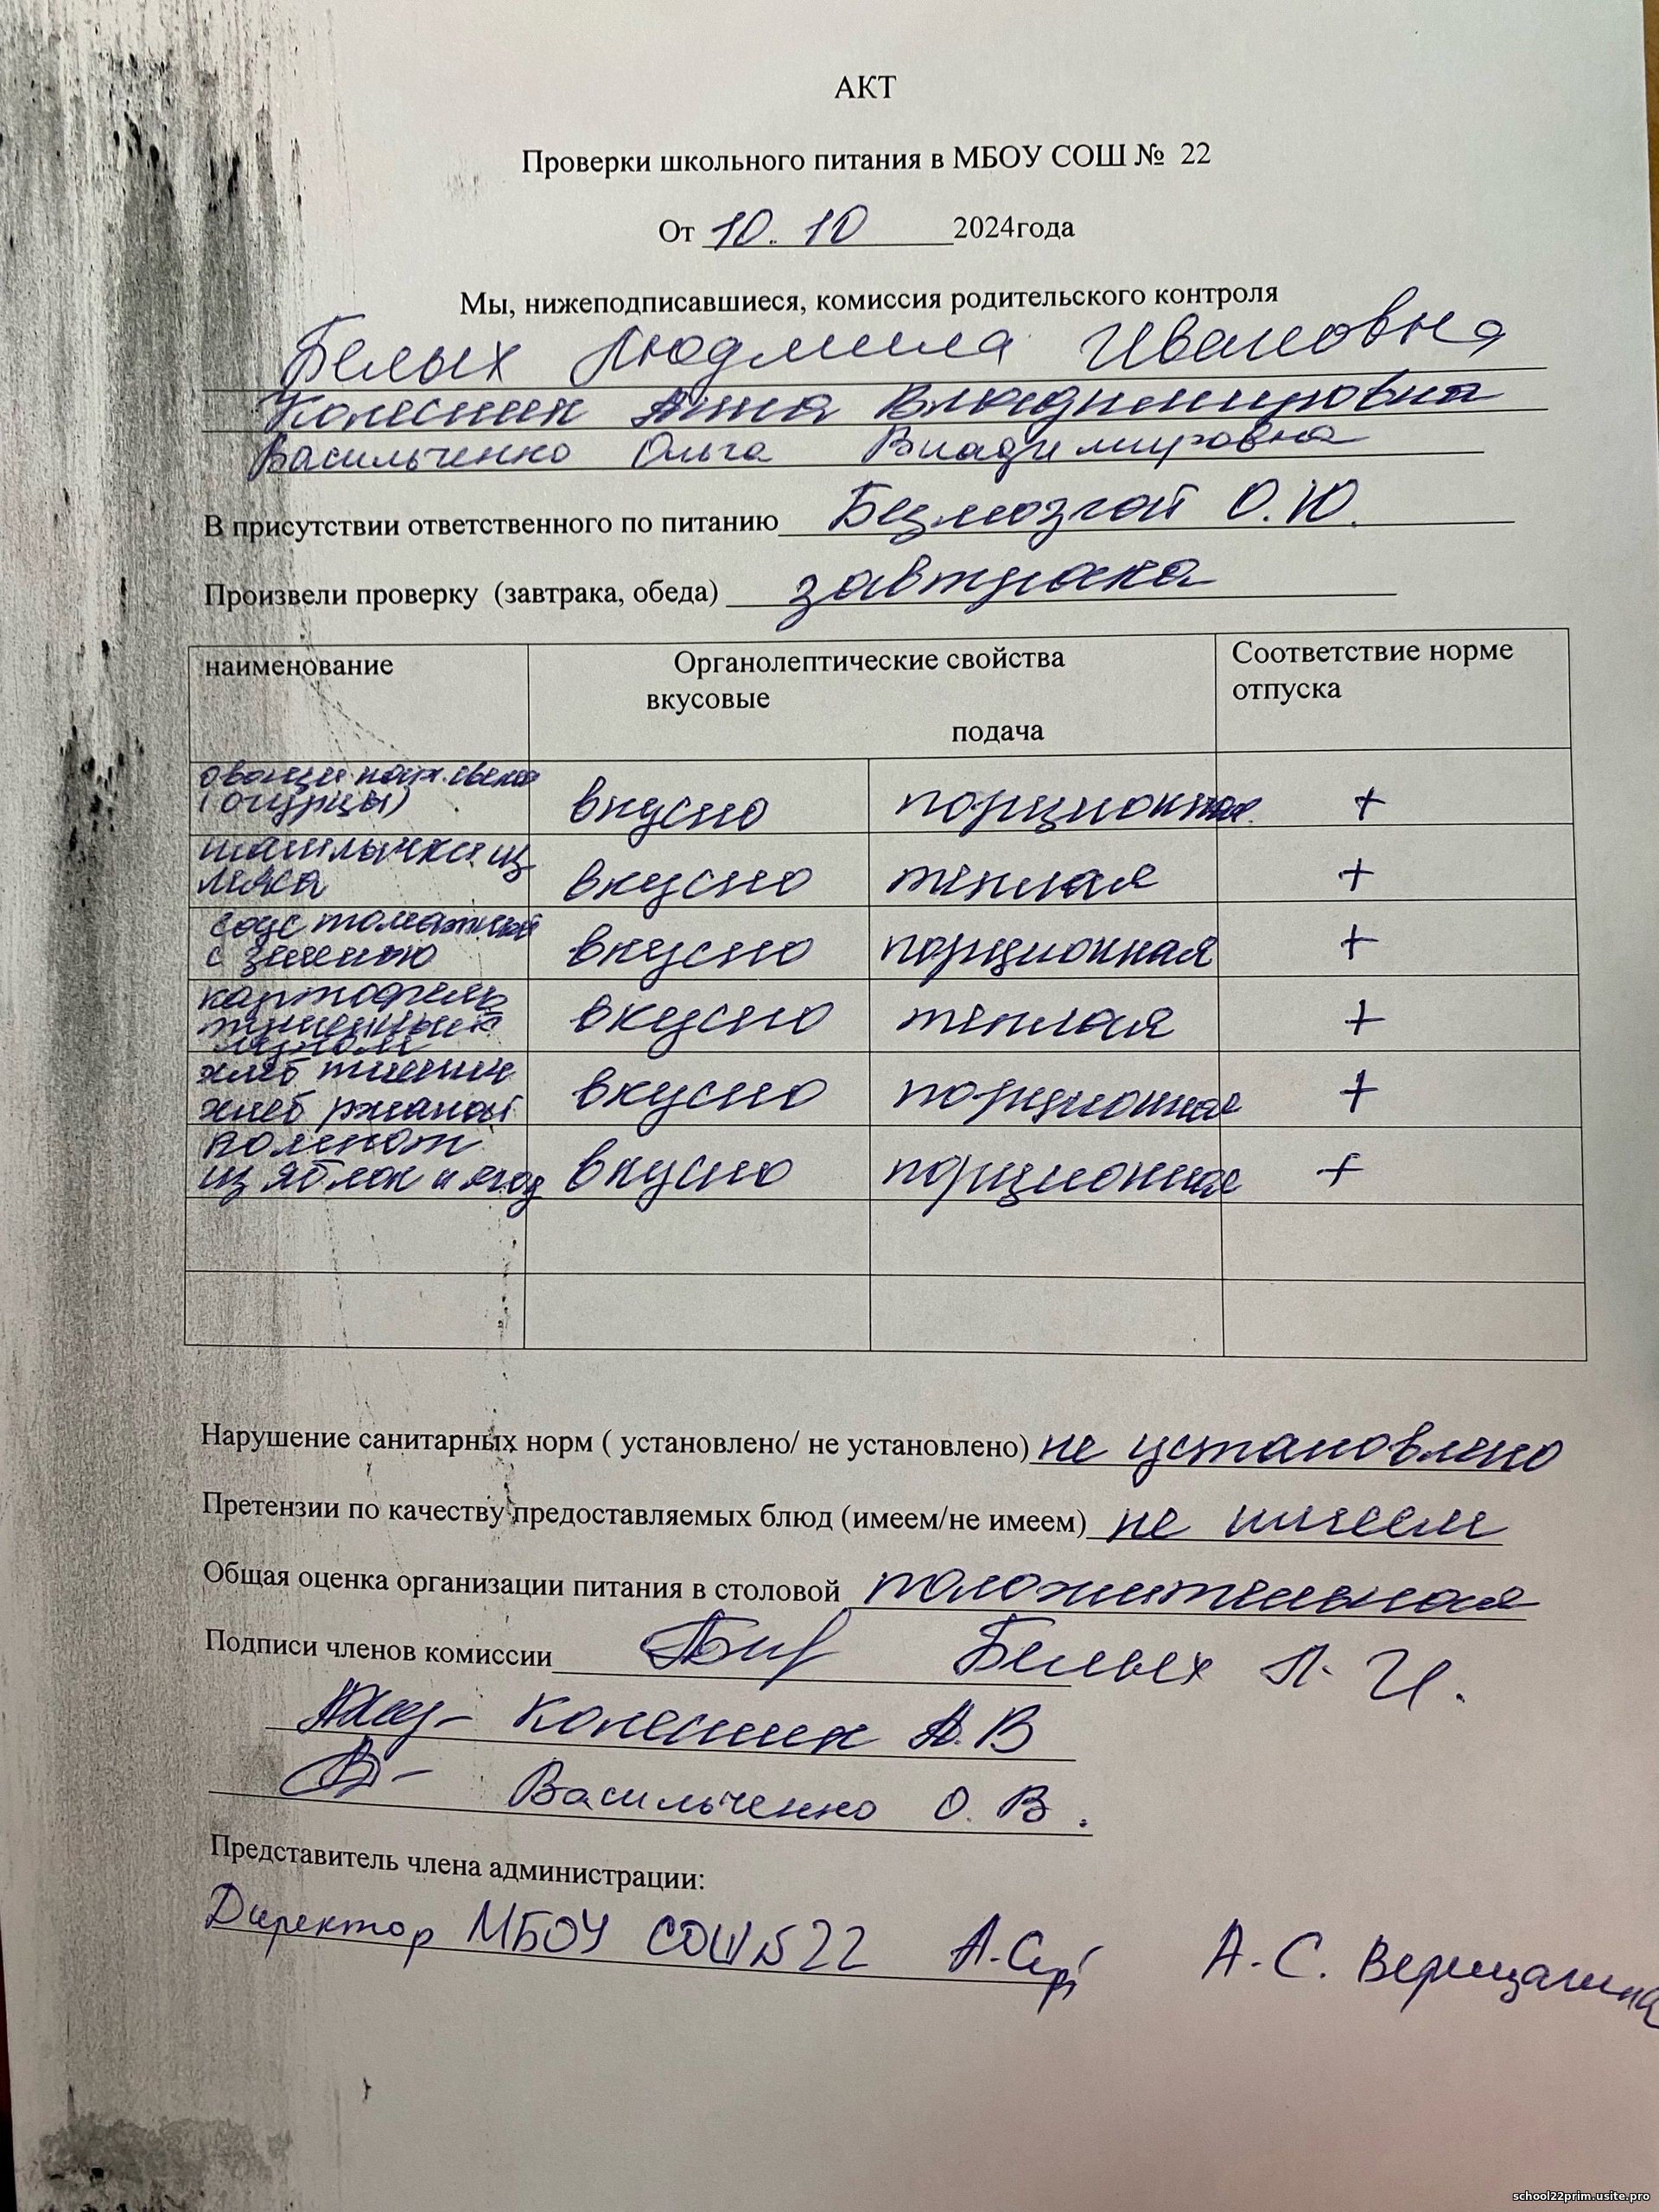 АКТ
Проверки школьного питания в МБОУ СОШ № 22
От 10.10 2024года
Мы, нижеподписавшиеся, комиссия родительского контроля
Белых Людмила Ивановна
Колесник Анна Владимировна
Васильченко Ольга Владимировна
В присутствии ответственного по питанию Безмозгой О.Ю.
Произвели проверку (завтрака, обеда) завтрака
наименование Органолептические свойства Соответствие норме
вкусовые отпуска
подача
овощи
(огурцы) вкусно порционная +
шашлычки из
мяса вкусно теплая +
соус томатный
с зеленью вкусно порционная +
картофель
тушенный с
луком вкусно теплая +
хлеб пшенич
хлеб ржаной вкусно порционная +
компот
из яблок и ягод вкусно порционная +
Нарушение санитарных норм ( установлено/ не установлено) не установлено
Претензии по качеству предоставляемых блюд (имеем/не имеем) не имеем
Общая оценка организации питания в столовой положительная
Подписи членов комиссии Белых Л. И.
Колесник А.В
Васильченко О.В.
Представитель члена администрации:
Директор МБОУ СОШ №22 А.С. Верещагина
school22prim.usite.pro